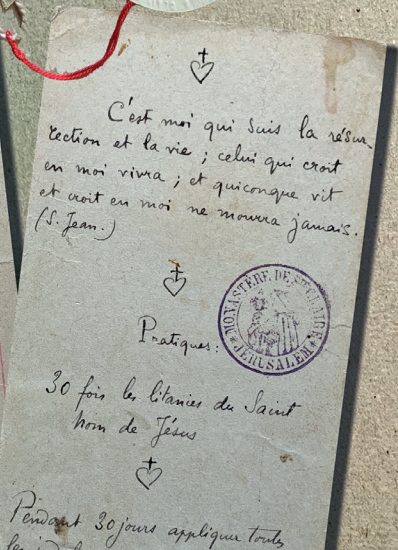 C'est moi qui suis la résur-
rection et la vie ; celui qui croit
en moi vivra ; et quiconque vit
et croit en moi ne mourra jamais.
(S. Jean.)
MONASTÈRE DE STE CLAIRE
JERUSALEM
Pratiques :
30 fois les litanies du Saint
Nom de Jésus
Pendant 30 jours appliquer toutes